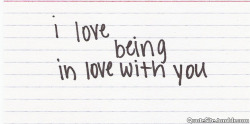 i love
being
in love with you
QuoteSite.tumblr.com